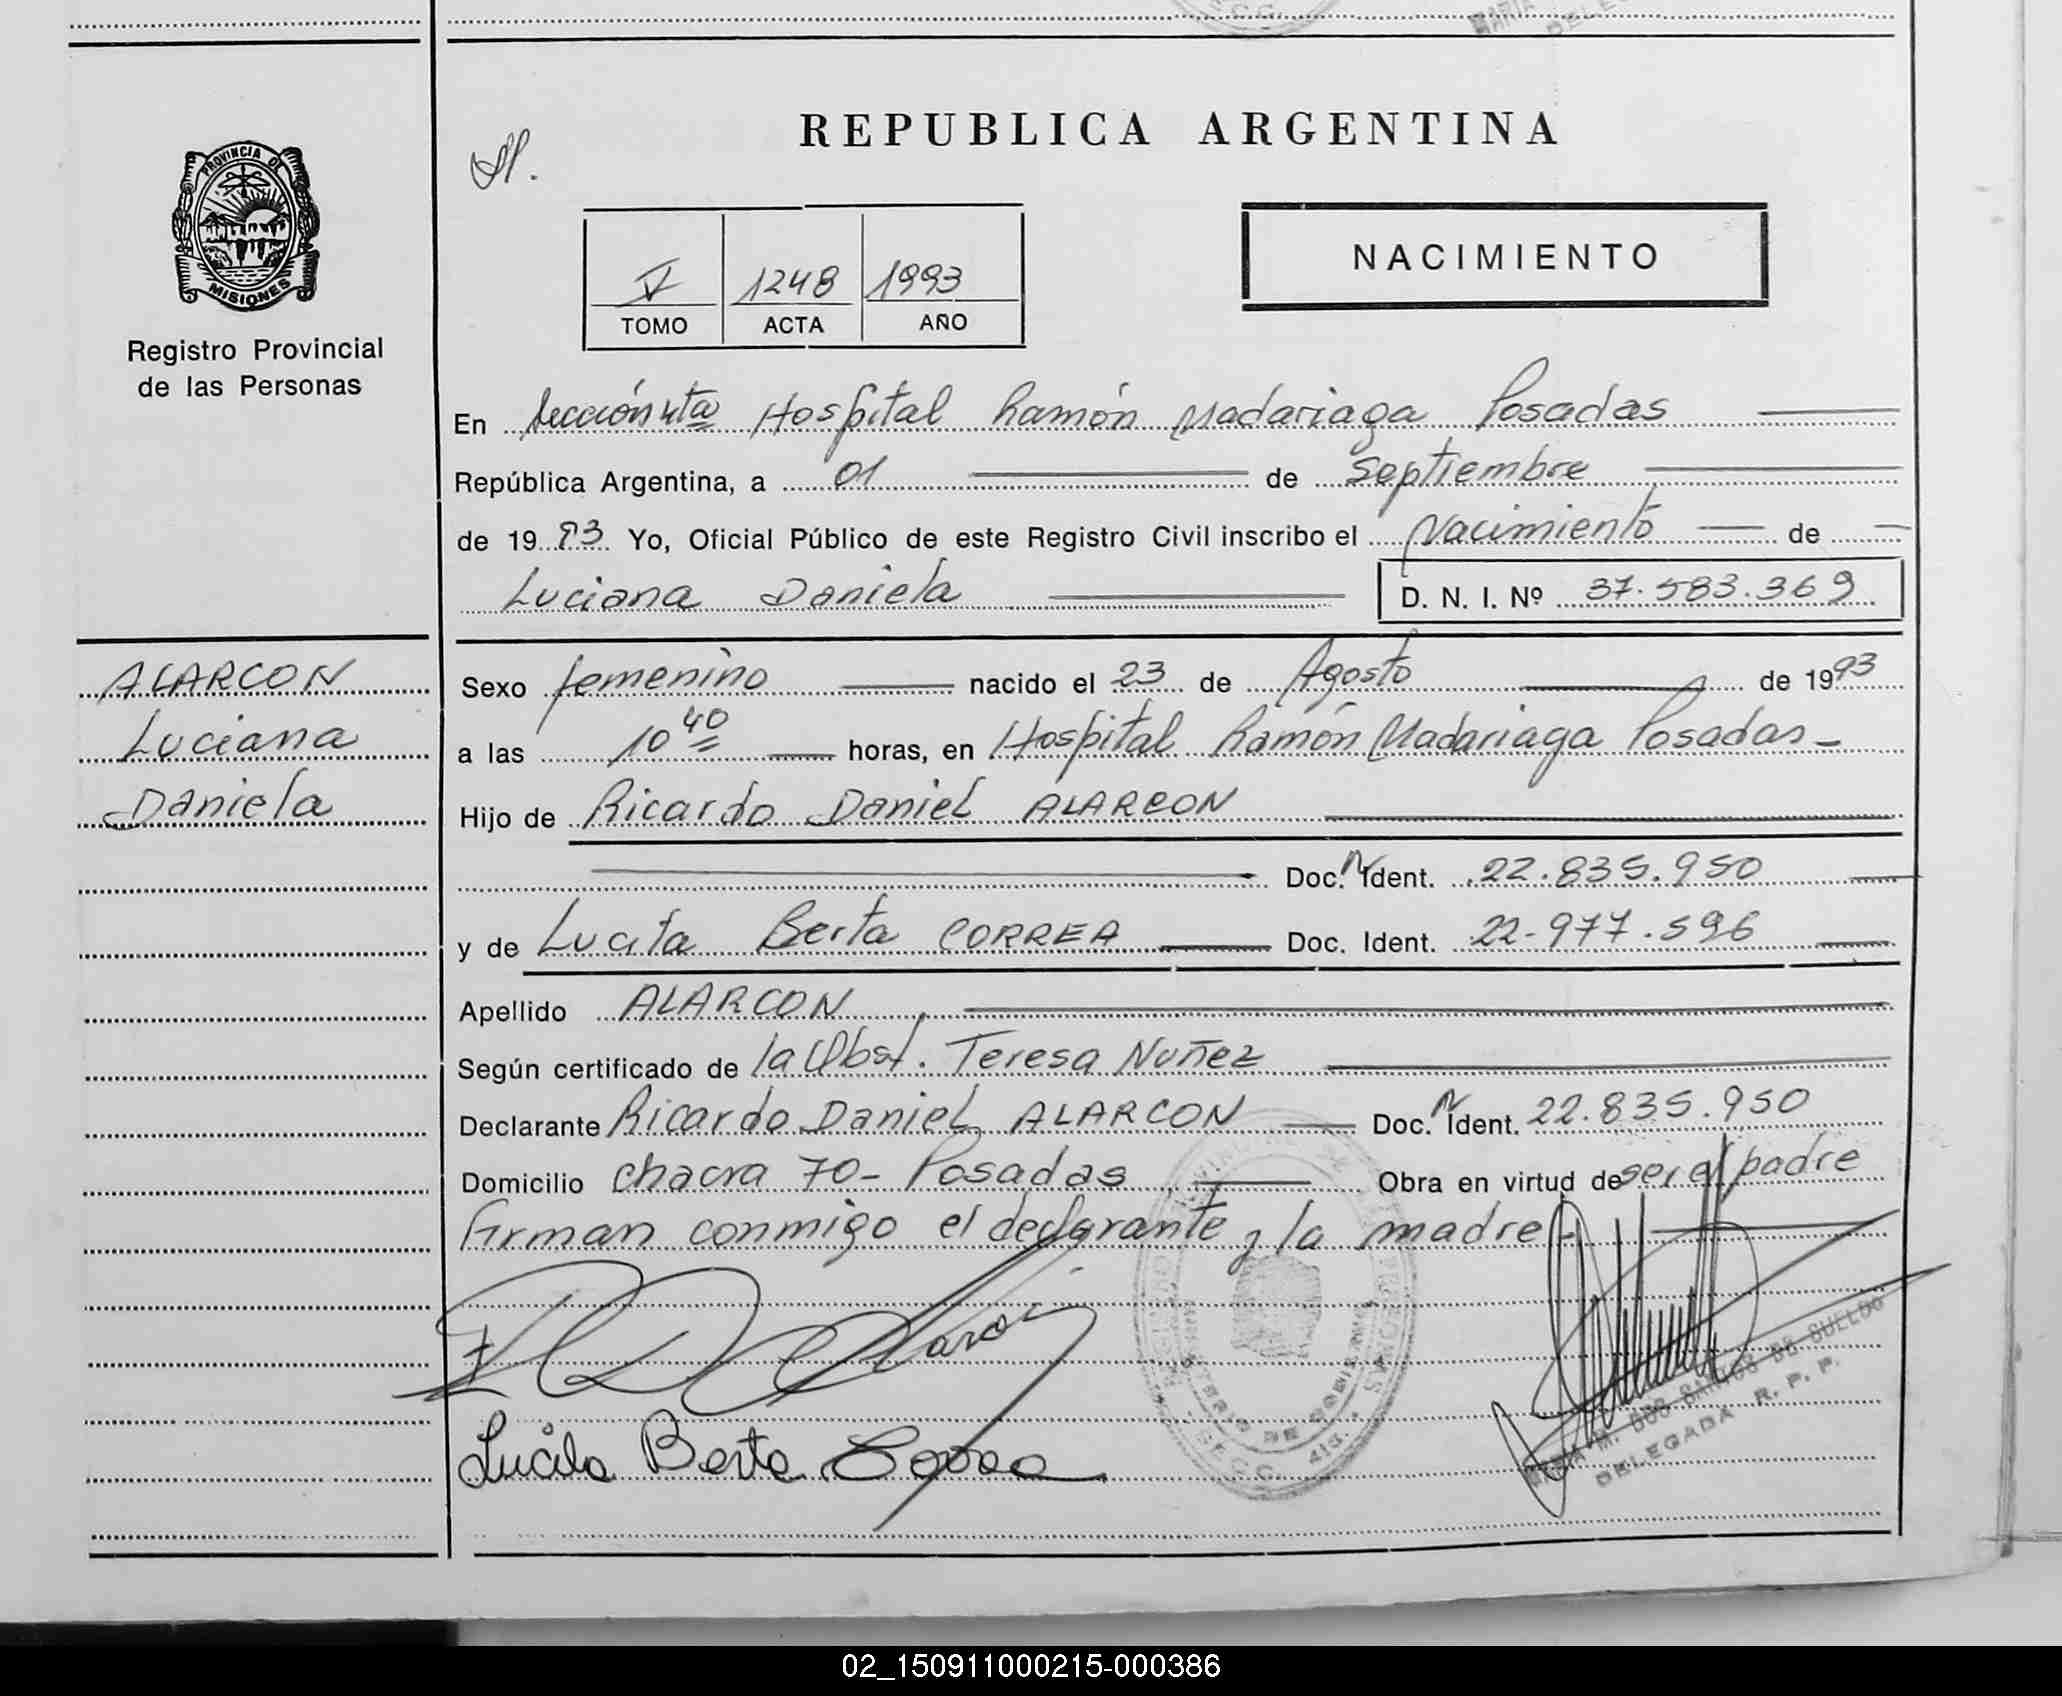 MARIA
DELE
REPUBLICA ARGENTINA
PROVINCIA DE
MISIONES
Registro Provincial
de las Personas
NACIMIENTO
V 1248 1993
TOMO ACTA AÑO
En Sección 4ta Hospital Ramón Madariaga Posadas
República Argentina, a 01 de Septiembre
de 1993 Yo, Oficial Público de este Registro Civil inscribo el Nacimiento de
Luciana Daniela D. N. I. Nº 37.583.369
ALARCON
Luciana
Daniela
Sexo femenino nacido el 23 de Agosto de 1993
a las 10 40 horas, en Hospital Ramón Madariaga Posadas-
Hijo de Ricardo Daniel ALARCON
Doc. N Ident. 22.835.950
y de Lucila Berta CORREA Doc. Ident. 22-977.596
Apellido ALARCON
Según certificado de la Obst. Teresa Nuñez
Declarante Ricardo Daniel ALARCON Doc. N Ident. 22.835.950
Domicilio chacra 70- Posadas Obra en virtud de ser el padre
Firman conmigo el declarante y la madre-
Lucila Berta Correa
MARIA M. DOS SANTOS DE SUELDO
DELEGADA R. P. P.
02_150911000215-000386